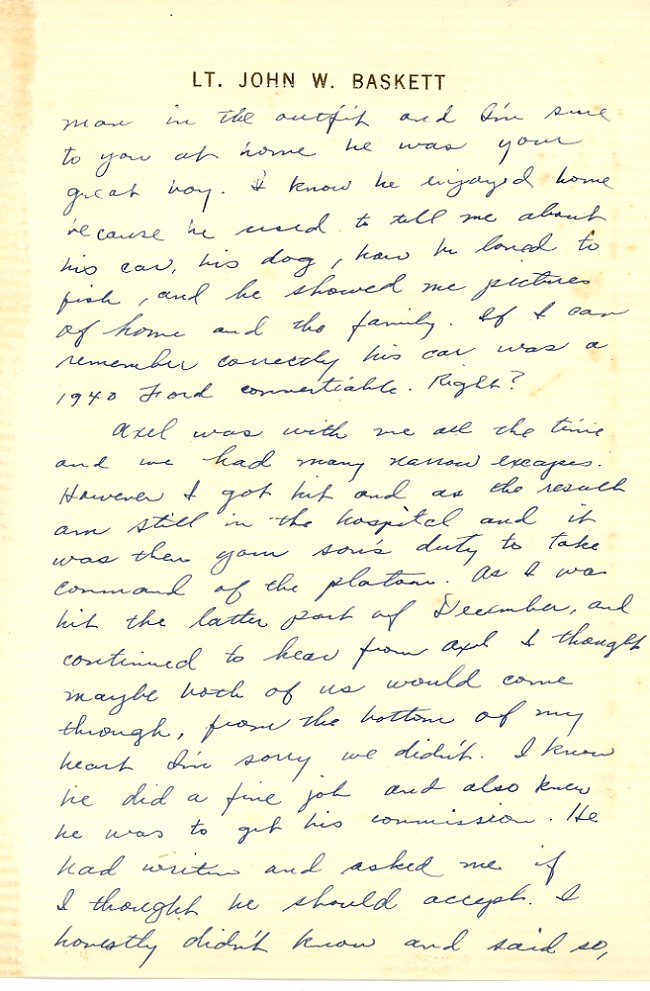 LT. JOHN W. BASKETT
man in the outfit and I'm sure
to you at home he was your
great boy. I know he enjoyed home
because he used to tell me about
his car, his dog, how he loved to
fish, and he showed me pictures
of home and the family. If I can
remember correctly his car was a
1940 Ford convertiable. Right?
Axel was with me all the time
and we had many narrow excapes.
However I got hit and as the result
am still in the hospital and it
was then your son's duty to take
command of the platoon. As I was
hit the latter part of December, and
continued to hear from Axel I thought
maybe both of us would come
through, from the bottom of my
heart I'm sorry we didn't. I know
he did a fine job and also knew
he was to get his commission. He
had written and asked me if
I thought he should accept. I
honestly didn't know and said so,